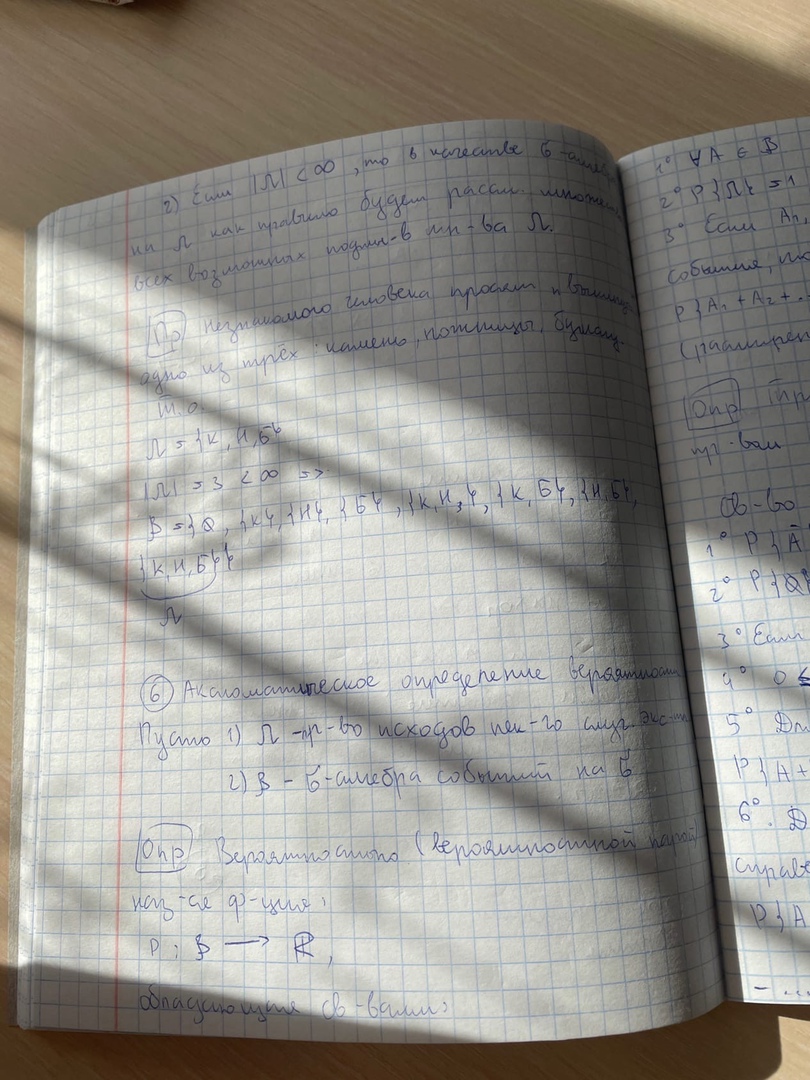 2) Если |Ω| < ∞, то в качестве σ-алгебры
на Ω как правило будем рассм. множество
всех возможных подмн-в мн-ва Ω.
Пр Незнакомого человека просят
одно из трёх: камень, ножницы, бумагу.
Т.о.
Ω = {К, Н, Б}
|Ω| = 3 < ∞ =>
𝔅 = {∅, {К}, {Н}, {Б}, {К, Н}, {К, Б}, {Н, Б},
{К, Н, Б}}
Ω
⑥ Аксиоматическое определение вероятности
Пусть 1) Ω - пр-во исходов нек-го случ. экс-та
2) 𝔅 - σ-алгебра событий на
Опр Вероятностью (вероятностной
наз-ся ф-ция:
P: 𝔅 ⟶ ℝ,
обладающая св-вами:
1° ∀A ∈ 𝔅
2° P{Ω} = 1
3° Если A₁,
события,
P{A₁ + A₂ + ..
(расширен
Опр
пр-вом
Св-во
1° P{Ā
2° P{∅}
3° Если
4° 0 ≤
5° Для
P{A +
6°. Д
справе
P{A